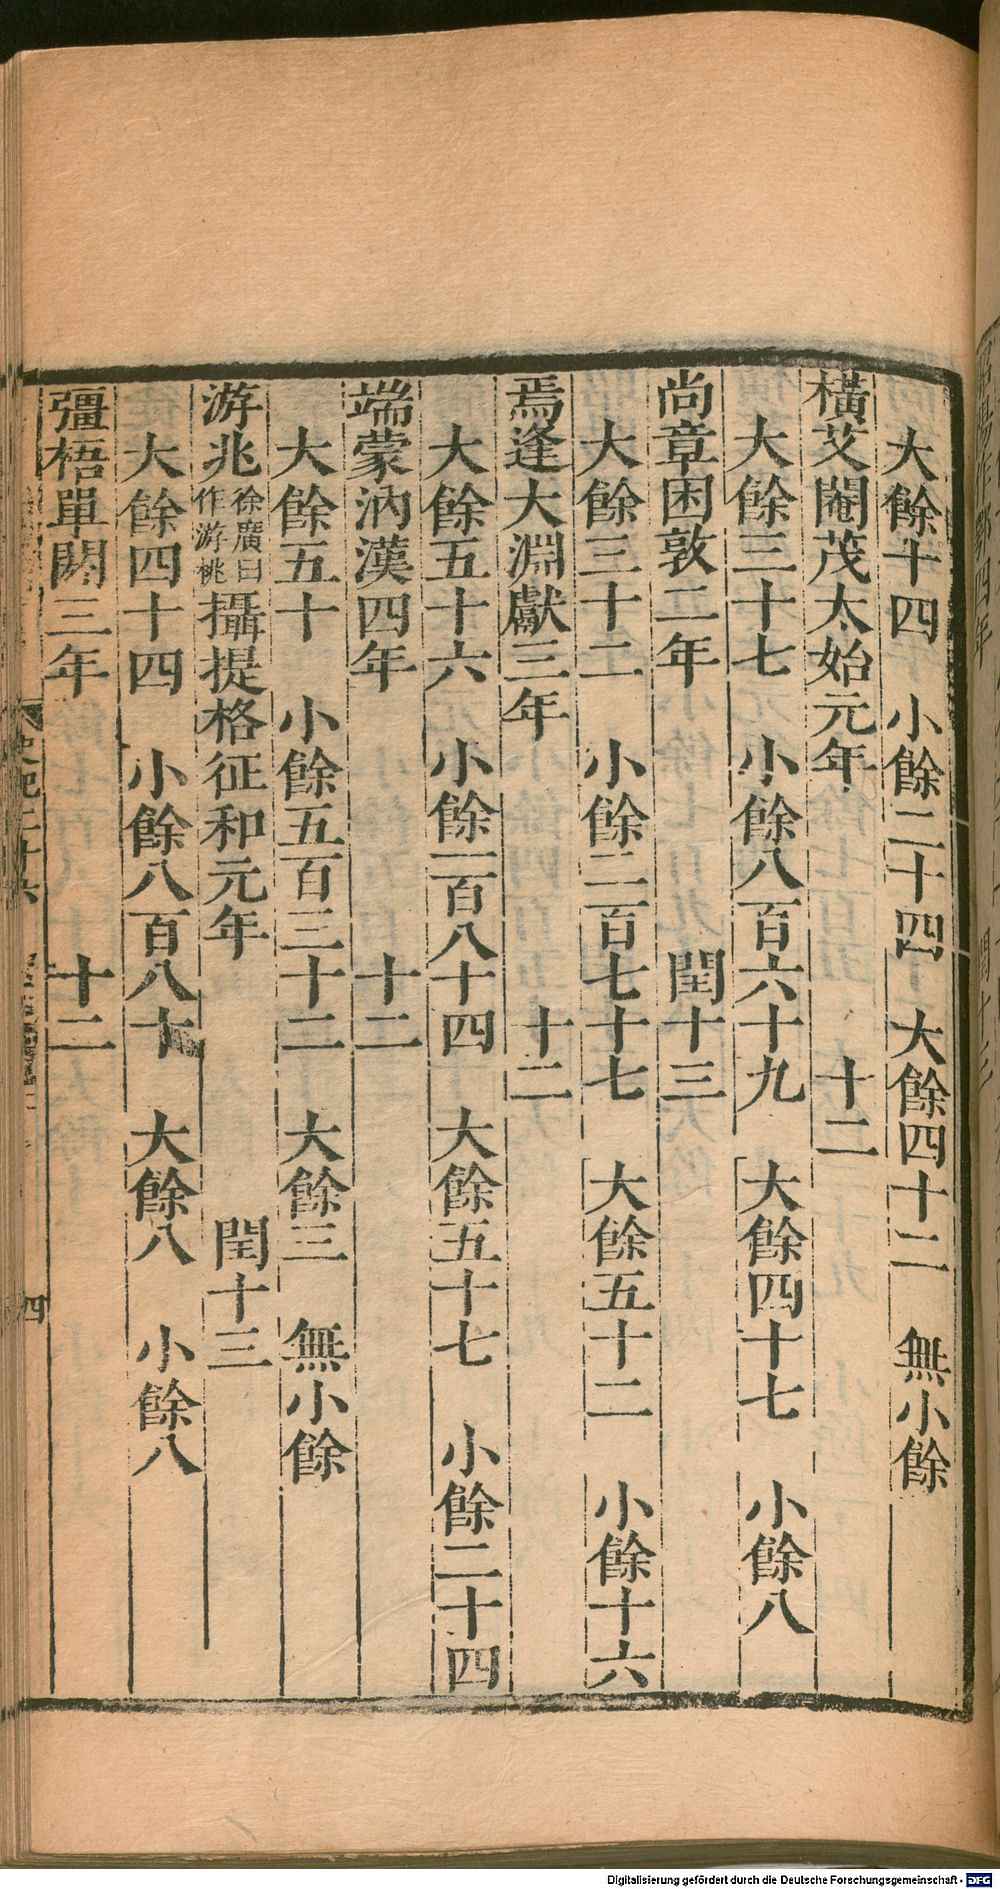 大餘十四　小餘二十四　大餘四十二　無小餘
橫艾閹茂太始元年　十二
大餘三十七　小餘八百六十九　大餘四十七　小餘八
尚章困敦二年　閏十三
大餘三十二　小餘二百七十七　大餘五十二　小餘十六
焉逢大淵獻三年　十二
大餘五十六　小餘一百八十四　大餘五十七　小餘二十四
端蒙汭漢四年　十二
大餘五十　小餘五百三十二　大餘三　無小餘
游兆徐廣曰作游桃攝提格征和元年　閏十三
大餘四十四　小餘八百八十　大餘八　小餘八
彊梧單閼三年　十二
史記二十六
四
Digitalisierung gefördert durch die Deutsche Forschungsgemeinschaft - DFG